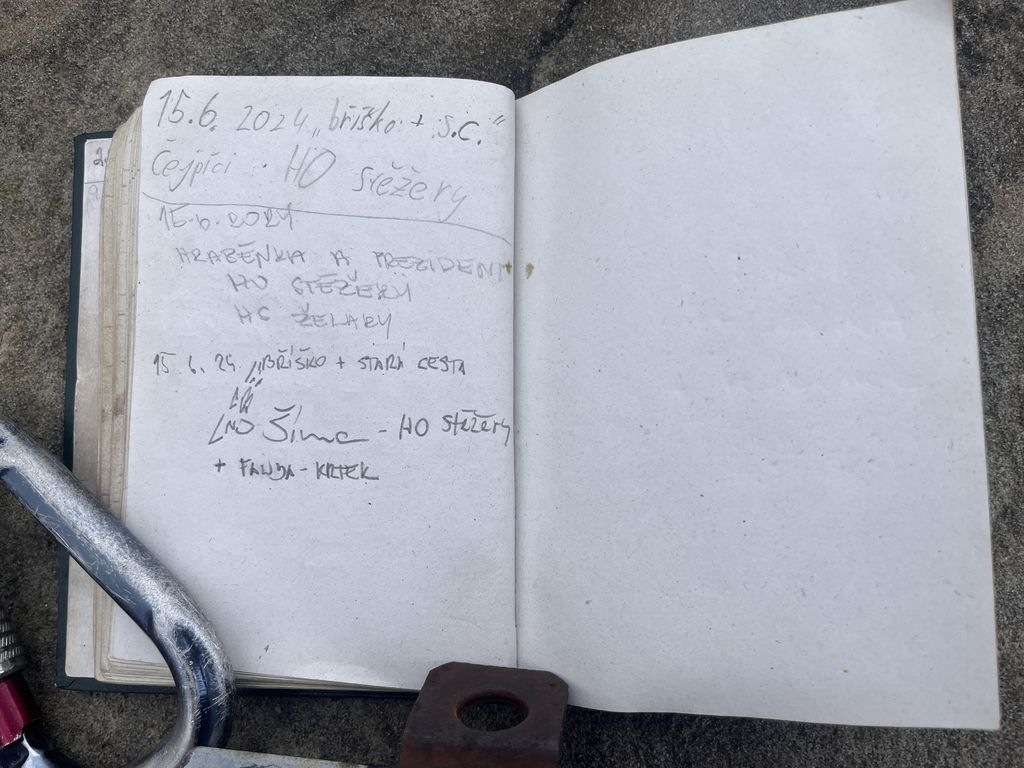 15.6. 2024 „bříško + S.C.“
Čejpíci . HO Stěžery
15.6.2024
HRABĚNKA A PREZIDENT
HO STĚŽERY
HC ŽELARY
15. 6. 24. „BŘÍŠKO + STARÁ CESTA
Šíma - HO Stěžery
+ FANDA - KRTEK